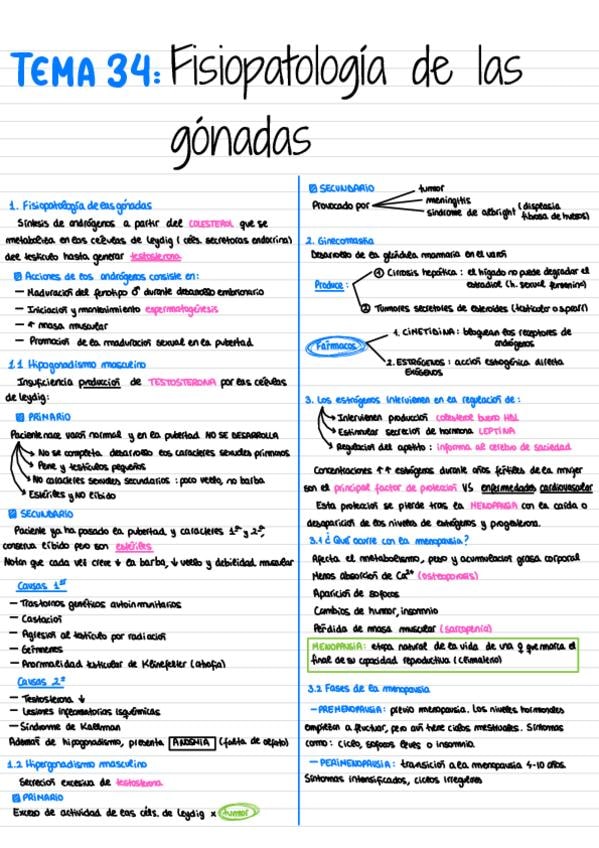 TEMA 34: Fisiopatología de las
gónadas
1. Fisiopatología de las gónadas
Síntesis de andrógenos a partir del COLESTEROL que se
metaboliza en las células de Leydig (céls. secretoras endocrina)
del testículo hasta generar testosterona
Acciones de los andrógenos consiste en:
— Maduración del fenotipo ♂ durante desarrollo embrionario
— Iniciación y mantenimiento espermatogénesis
— ↑ masa muscular
— Promoción de la maduración sexual en la pubertad
1.1 Hipogonadismo masculino
Insuficiencia producción de TESTOSTERONA por las células
de leydig:
PRIMARIO
Paciente nace varón normal y en la pubertad NO SE DESARROLLA
No se completa desarrollo los caracteres sexuales primarios
Pene y testículos pequeños
No caracteres sexuales secundarios: poco vello, no barba
Estériles y NO libido
SECUNDARIO
Paciente ya ha pasado la pubertad y caracteres 1º y 2º,
conserva libido pero son estériles
Notan que cada vez crece ↓ la barba, ↓ vello y debilidad muscular
Causas 1º
— Trastornos genéticos autoinmunitarios
— Castación
— Agresión al testículo por radiación
— Gérmenes
— Anormalidad testicular de Klinefelter (atrofia)
Causas 2º
— Testosterona ↓
— Lesiones inflamatorias isquémicas
— Síndrome de Kallman
Además de hipogonadismo, presenta ANOSMIA (falta de olfato)
1.2 Hipergonadismo masculino
Secreción excesiva de testosterona
PRIMARIO
Exceso de actividad de las céls. de Leydig x tumor
SECUNDARIO
Provocado por
tumor
meningitis
síndrome de albright (displasia
fibrosa de huesos)
2. Ginecomastia
Desarrollo de la glándula mamaria en el varón
Produce:
① Cirrosis hepática: el hígado no puede degradar el
estradiol (h. sexual femenina)
② Tumores secretores de esteroides (testicular o sparr)
Fármacos
1. CIMETIDINA: bloquean los receptores de
andrógenos
2. ESTRÓGENOS: acción estrogénica directa
EXÓGENOS
3. Los estrógenos intervienen en la regulación de:
Intervienen producción colesterol bueno HDL
Estimular secreción de hormona LEPTINA
Regulación del apetito: informa al cerebro de saciedad
Concentraciones ↑↑ estrógenos durante años fértiles de la mujer
son el principal factor de protección VS enfermedades cardiovascular
Esta protección se pierde tras la MENOPAUSIA con la caída o
desaparición de los niveles de estrógenos y progesterona.
3.1 ¿Qué ocurre con la menopausia?
Afecta el metabolismo, peso y acumulación grasa corporal
Menos absorción de Ca²⁺ (osteoporosis)
Aparición de sofocos
Cambios de humor, insomnio
Pérdida de masa muscular (sarcopenia)
MENOPAUSIA: etapa natural de la vida de una ♀ que marca el
final de su capacidad reproductiva (climaterio)
3.2 Fases de la menopausia
— PREMENOPAUSIA: previo menopausia. Los niveles hormonales
empiezan a fluctuar, pero aún tiene ciclos mestruales. Síntomas
como: ciclo, sofocos leves o insomnio.
— PERIMENOPAUSIA: transición a la menopausia 4-10 años.
Síntomas intensificados, ciclos irregulares